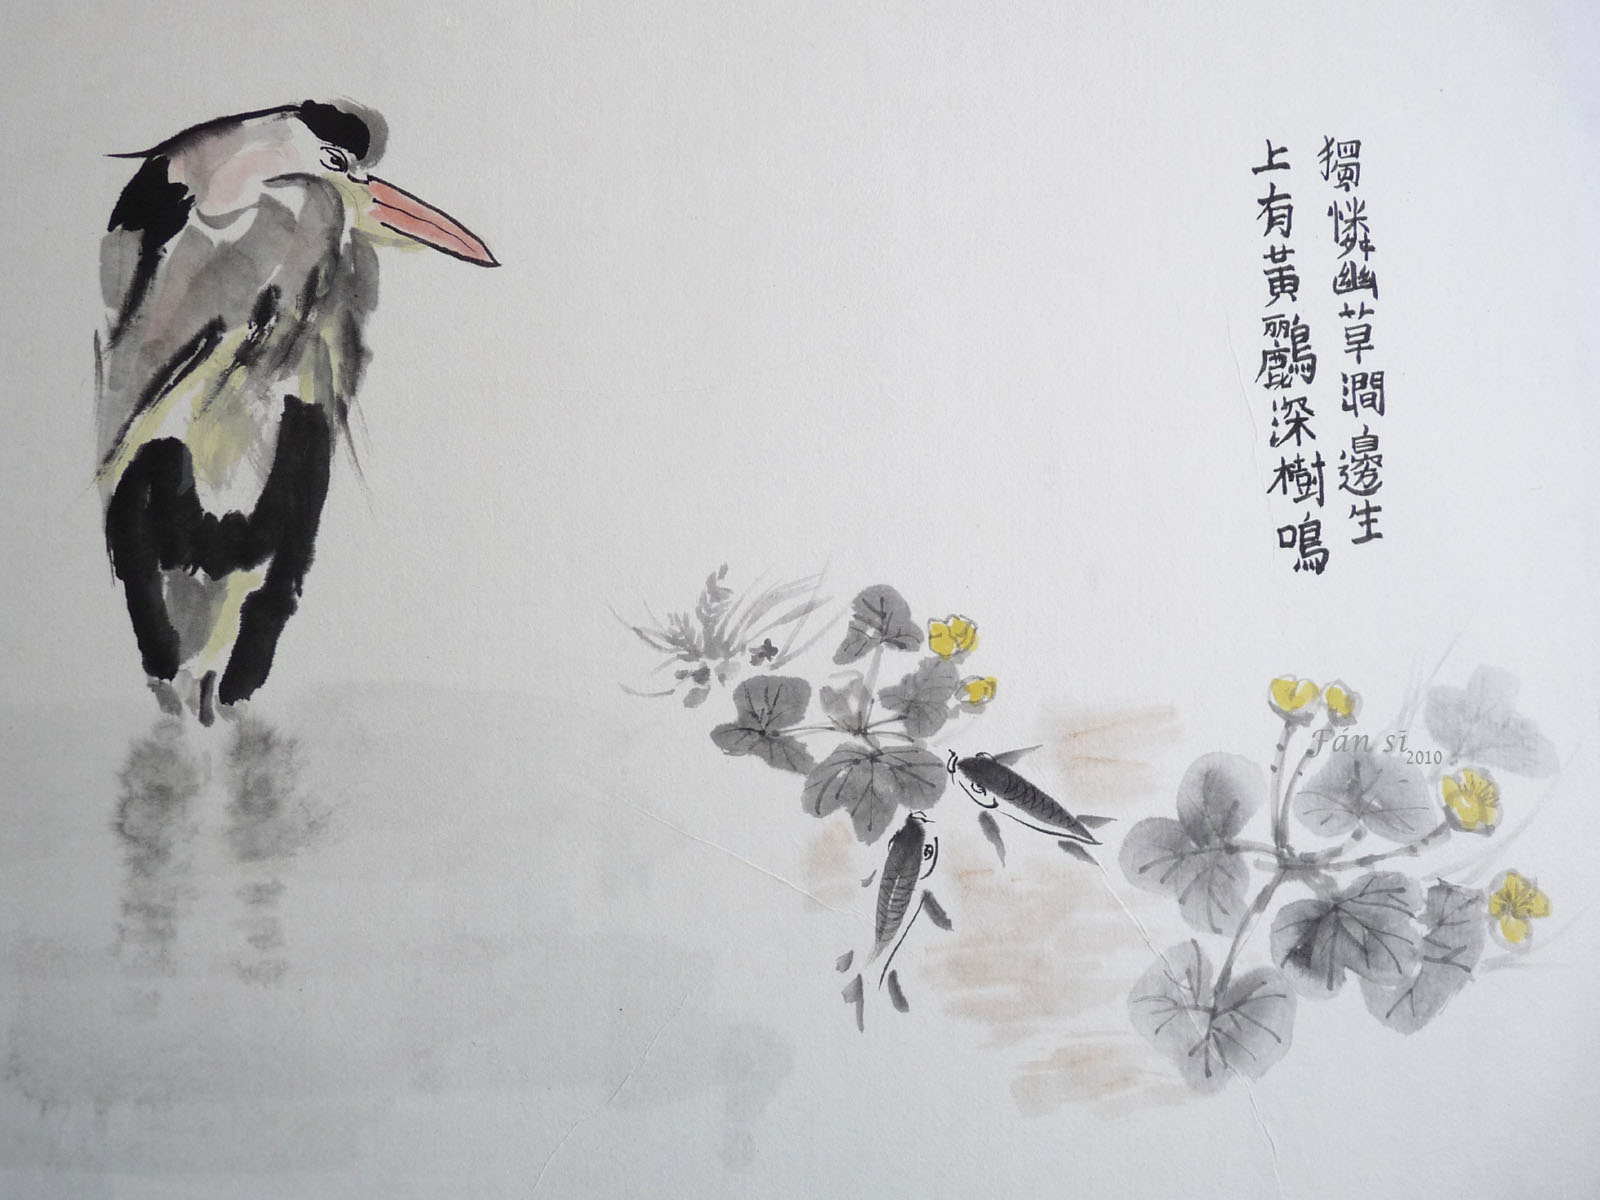 獨憐幽草澗邊生
上有黃鸝深樹鳴
Fán sī 2010